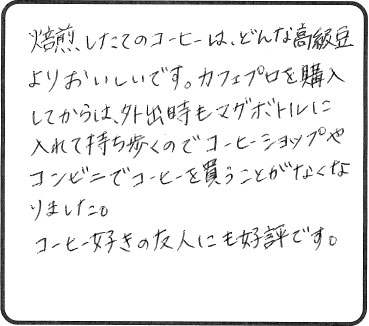 焙煎したてのコーヒーは、どんな高級豆
よりおいしいです。カフェプロを購入
してからは、外出時もマグボトルに
入れて持ち歩くのでコーヒーショップや
コンビニでコーヒーを買うことがなくな
りました。
コーヒー好きの友人にも好評です。